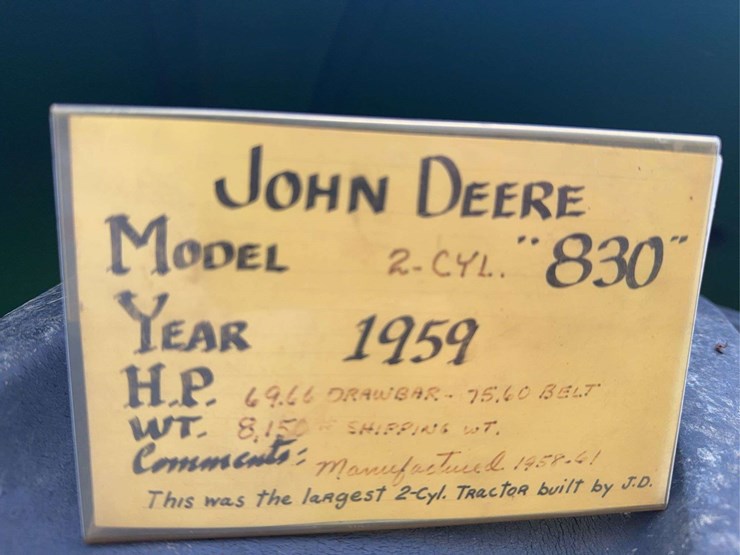 JOHN DEERE
MODEL 2-CYL. "830"
YEAR 1959
H.P. 69.66 DRAWBAR - 75.60 BELT
WT. 8,150# SHIPPING WT.
Comments: Manufactured 1958-61
This was the largest 2-Cyl. Tractor built by J.D.